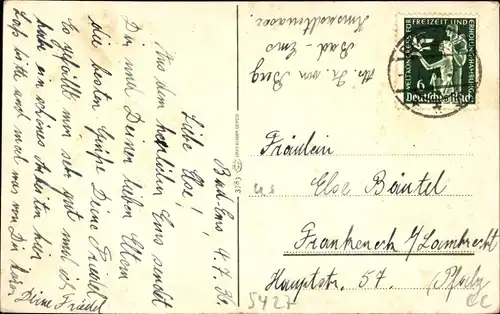 Bad Ems, 4. 7. 36.
Liebe Else!
Aus dem herrlichen Ems sendet
Dir und Deinen lieben Eltern
die besten Grüße Deine Friedel
Es gefällt mir sehr gut und ich
habe ein schönes Arbeiten hier.
Laß bitte auch mal was von Dir hören
Deine Friedel
Adr. Fr. von Berg
Bad Ems
WELTKONGRESS FÜR FREIZEIT UND ERHOLUNG HAMBURG
6
Deutsches Reich
Fräulein
Else Bäutel
Frankeneck b/Lambrecht
Hauptstr. 57. Pfalz
5427